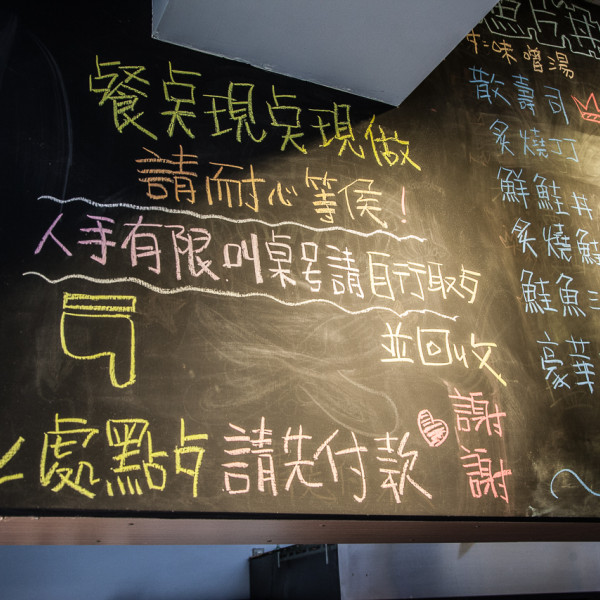 餐点現点現做
請耐心等侯！
人手有限叫桌号請自行取歺
並回收
處點歺請先付款
謝謝
味噌湯
散壽司
炙燒丁
鮮鮭丼
炙燒鮭
鮭魚三
豪華